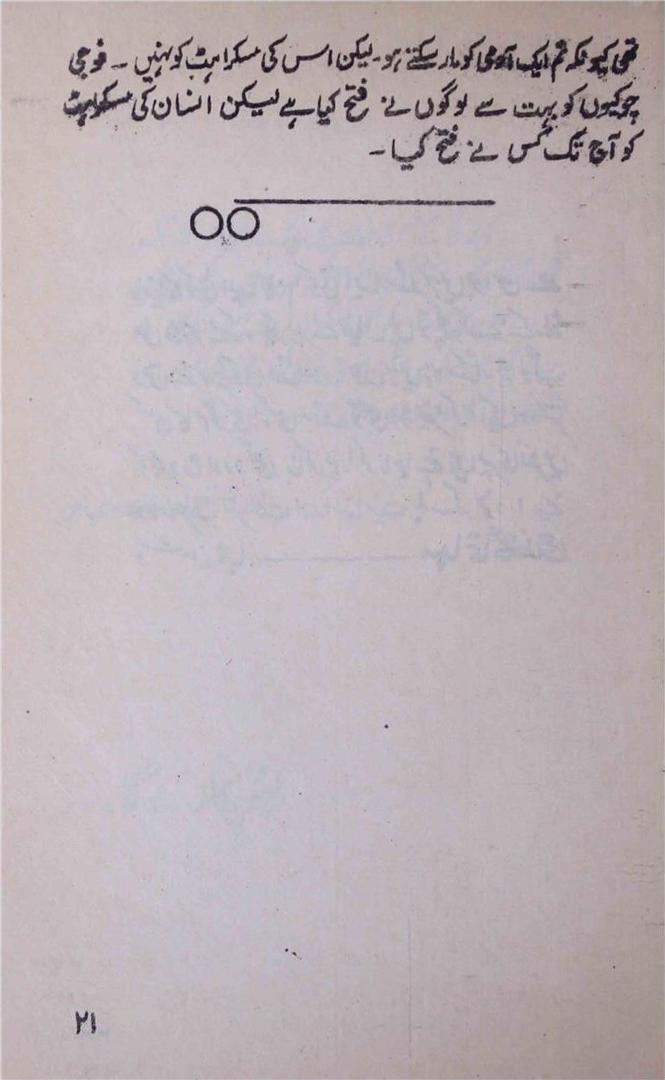 تھی کیونکہ تم ایک آدمی کو مار سکتے ہو۔ لیکن اس کی مسکراہٹ کو نہیں ۔ فوجی
چوکیوں کو بہت سے لوگوں نے فتح کیا ہے لیکن انسان کی مسکراہٹ
کو آج تک کس نے فتح کیا ۔
۲۱